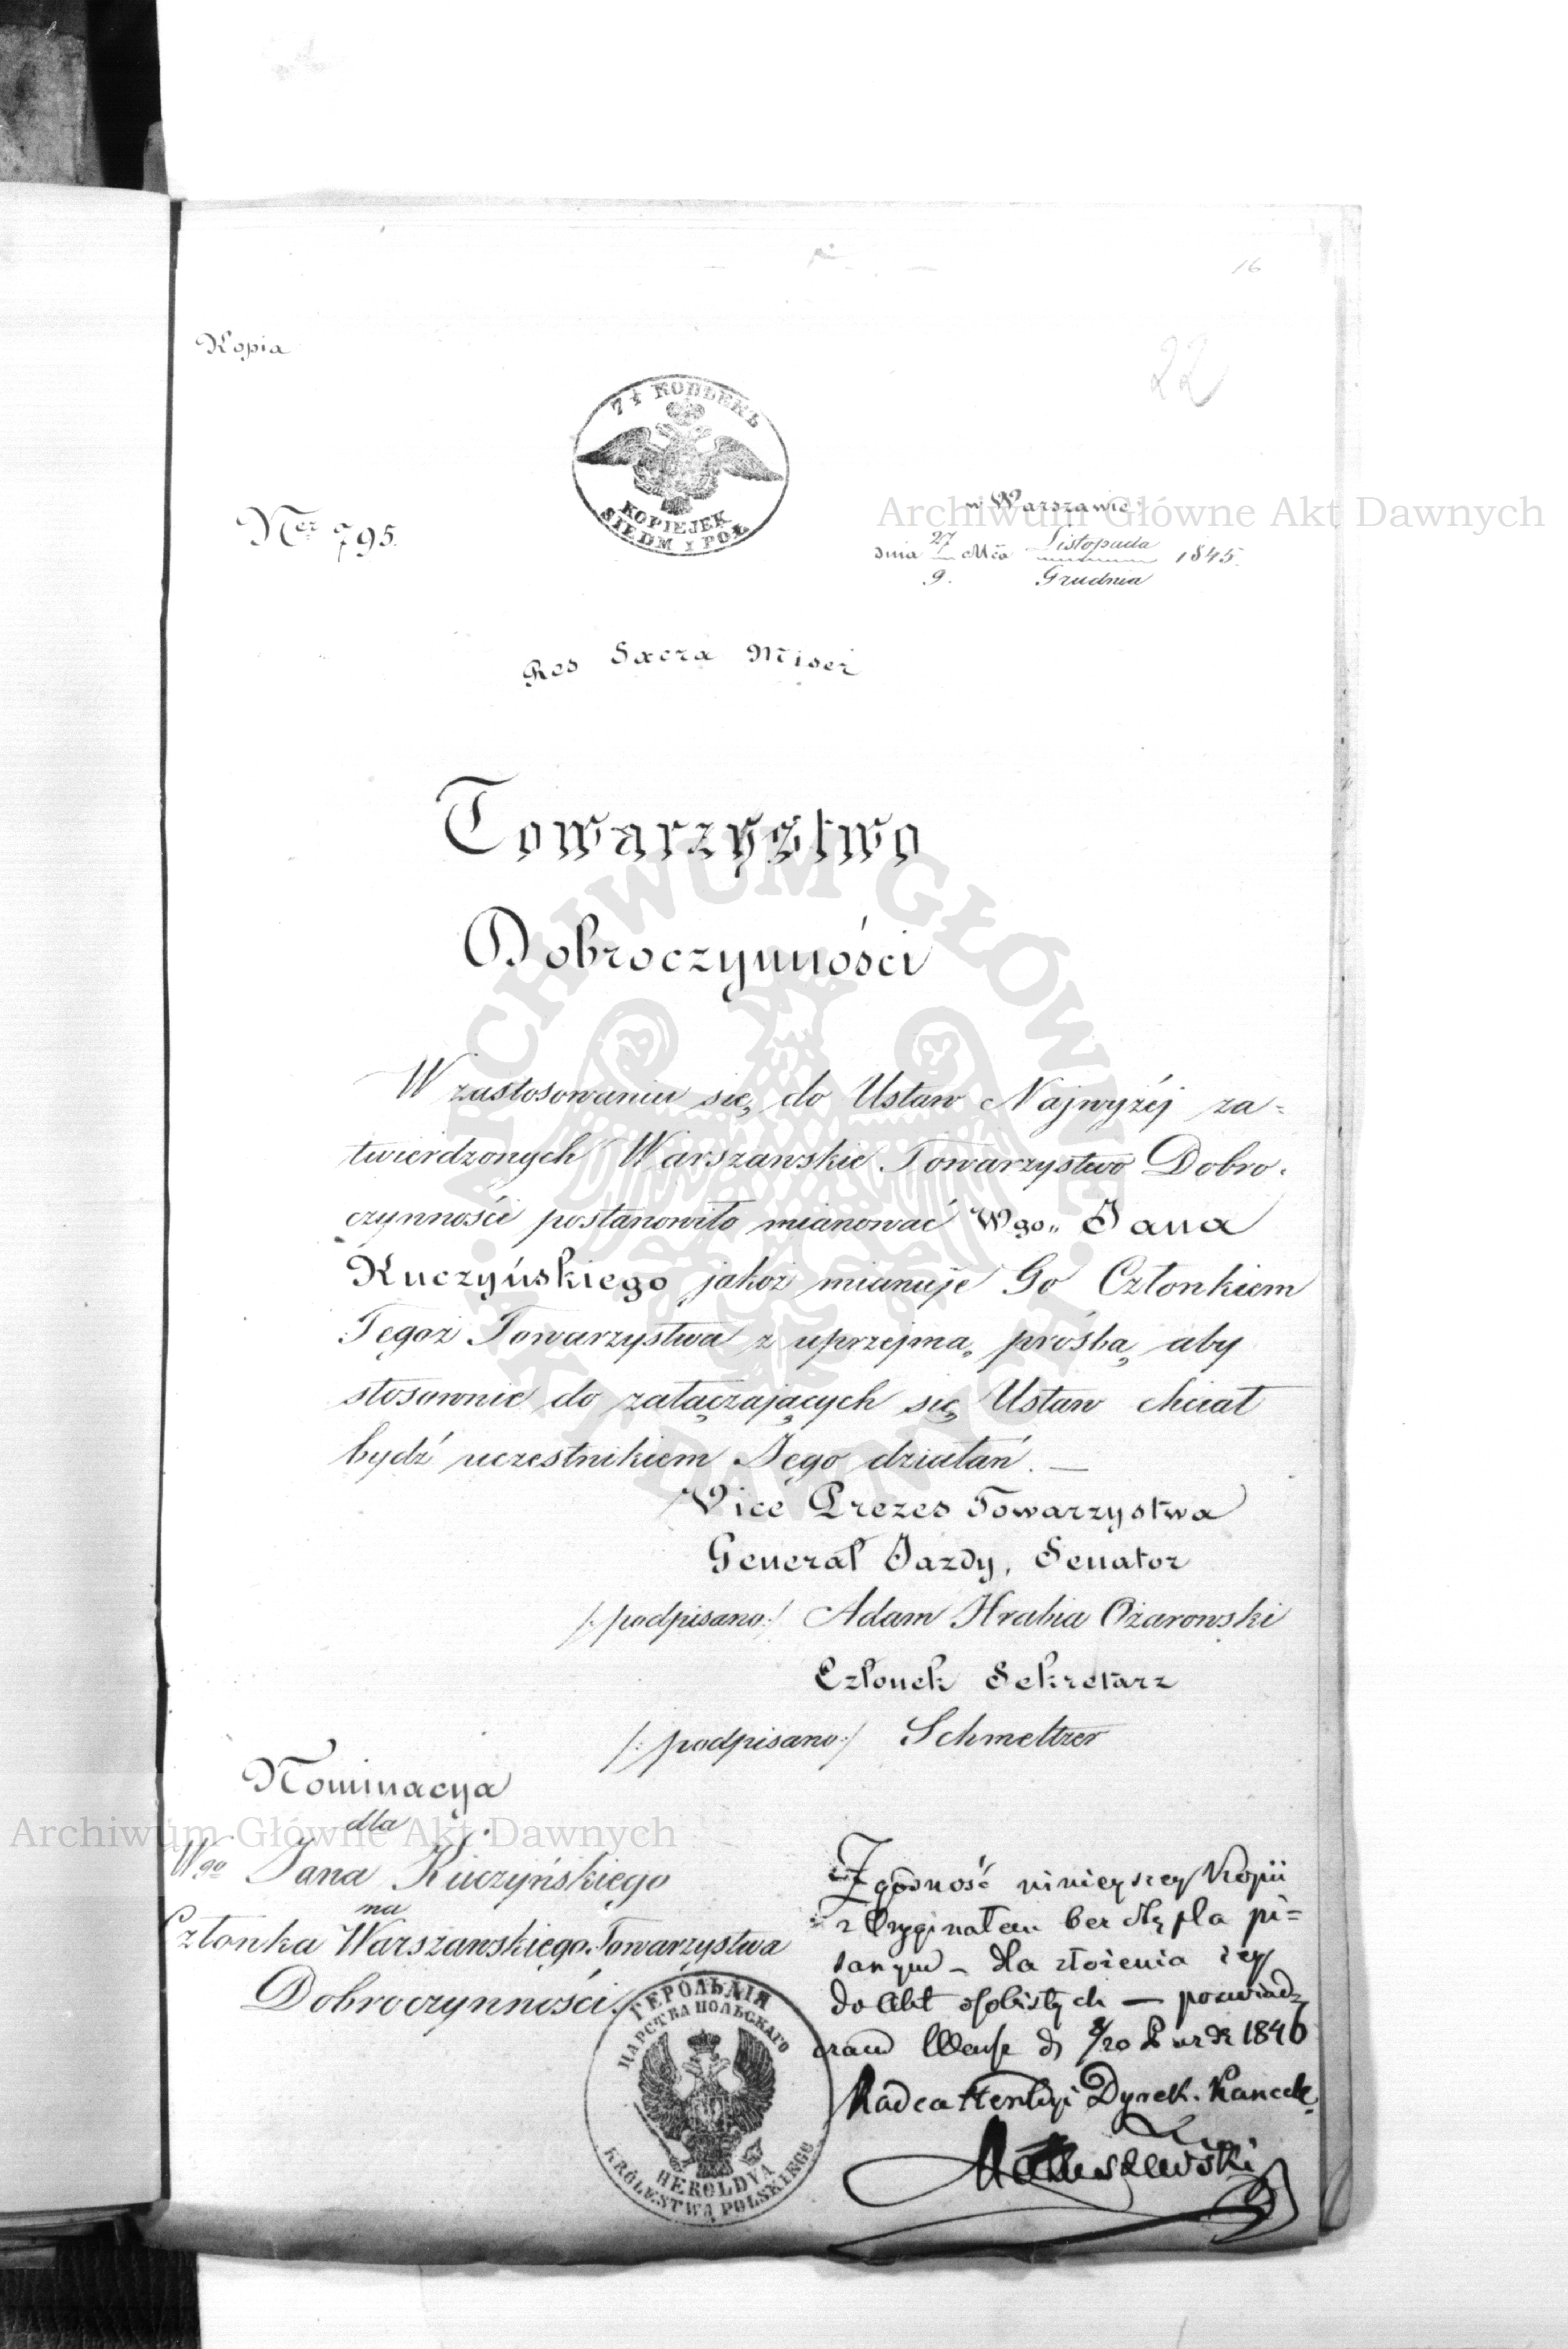 16
Kopia
22
7½ КОПѢЕКЪ
KOPIEJEK
SIEDM I PÓŁ
w Warszawie
Archiwum Główne Akt Dawnych
Ner 795.
dnia 27/9. Mca Listopada/Grudnia 1845.
Res Sacra Miser
Towarzystwo
Dobroczynności
W zastosowaniu się do Ustaw Najwyżéj za=
twierdzonych Warszawskie Towarzystwo Dobro.
czynności postanowiło mianować Wgo„ Jana
Kuczyńskiego jakoż mianuje Go Członkiem
Tegoż Towarzystwa z uprzejmą prośbą aby
stosownie do załączających się Ustaw chciał
bydź uczestnikiem Jego działań. —
Vice Prezes Towarzystwa
Generał Jazdy, Senator
/:podpisano:/ Adam Hrabia Ożarowski
Członek Sekretarz
/:podpisano:/ Schmeltzer
Nominacya
dla
Archiwum Główne Akt Dawnych
Wgo Jana Kuczyńskiego
na
Członka Warszawskiego Towarzystwa
Dobroczynności.
Zgodność niniejszey Kopii
z Oryginałem bez stępla pi=
sanym – dla złożenia jey
do Akt osobistych — poświad
czam Warsz d 8/20 1846
Radca Heroldyi Dyrek. Kancel.
Matuszewski
ГЕРОЛЬДІЯ
ЦАРСТВА ПОЛЬСКАГО
HEROLDYA
KRÓLESTWA POLSKIEGO
ARCHIWUM GŁÓWNE AKT DAWNYCH